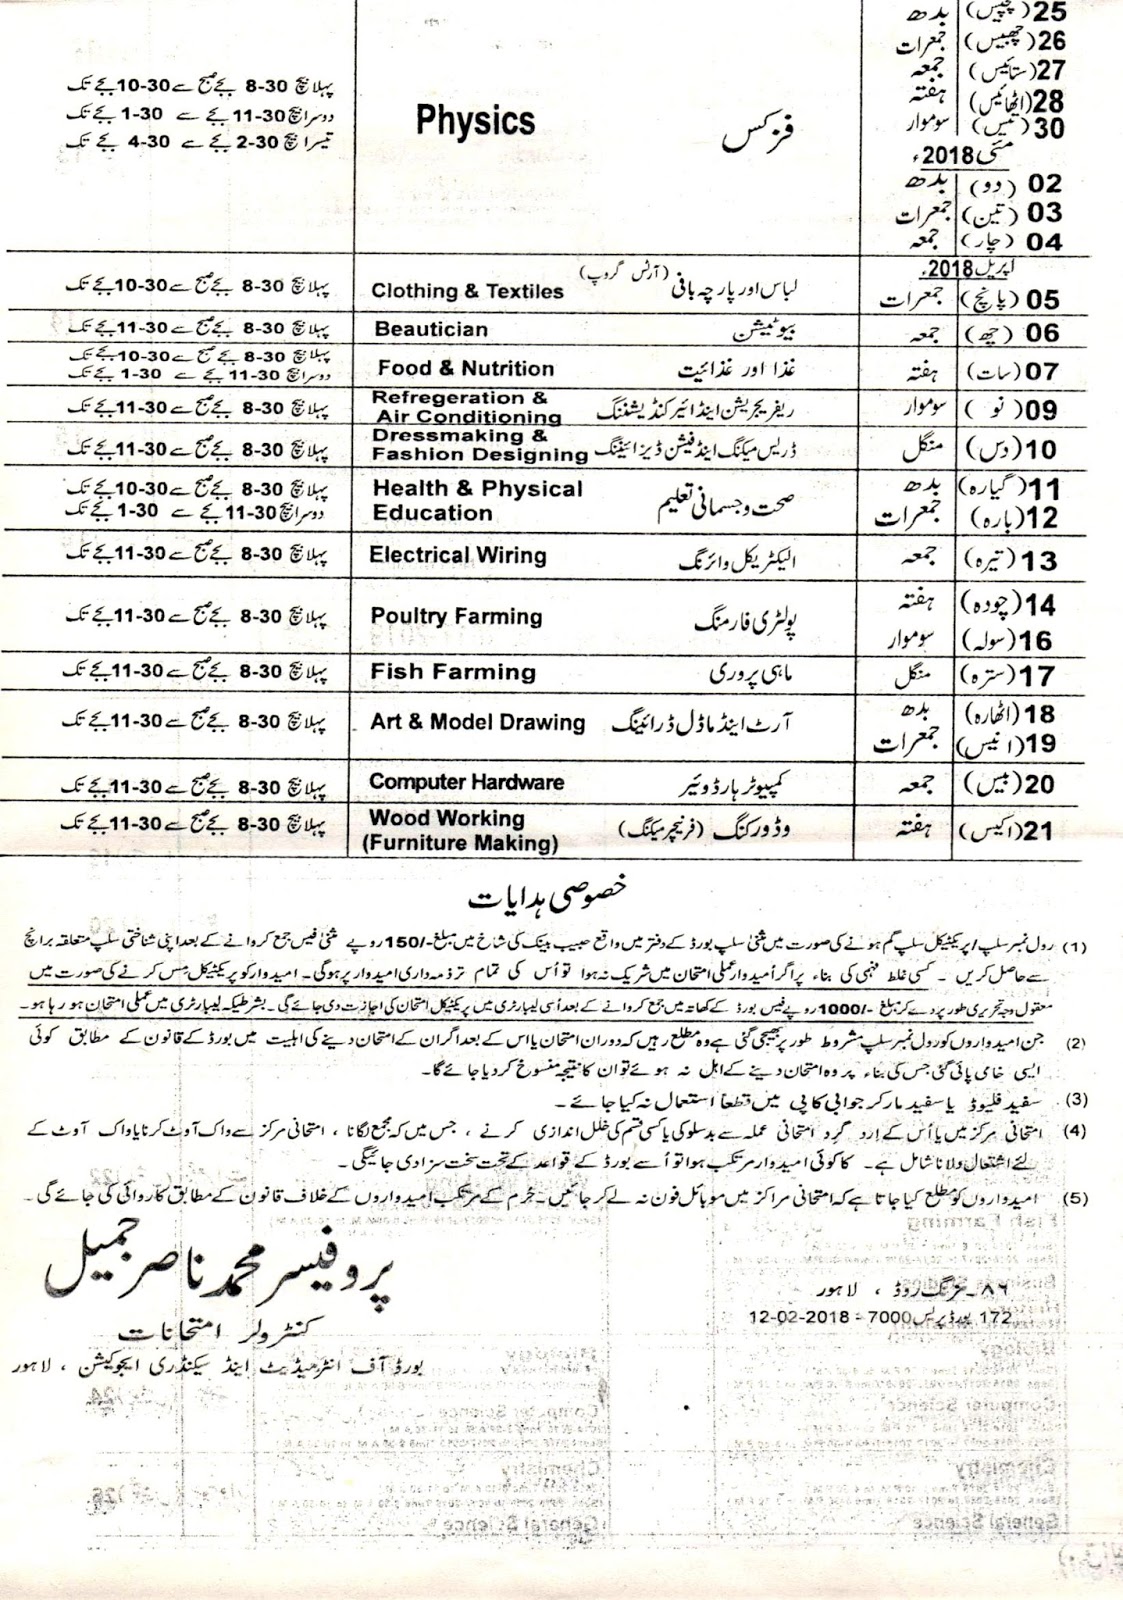 25 (چپیس) بدھ
26 (چھبیس) جمعرات
27 (ستائیس) جمعہ
28 (اٹھائیس) ہفتہ
30 (تیس) سوموار
مئی 2018ء
02 (دو) بدھ
03 (تین) جمعرات
04 (چار) جمعہ
فزکس Physics
پہلا بیچ 30-8 بجے صبح سے 30-10 بجے تک
دوسرا بیچ 30-11 بجے سے 30-1 بجے تک
تیسرا بیچ 30-2 بجے سے 30-4 بجے تک
اپریل 2018ء
05 (پانچ) جمعرات لباس اور پارچہ بافی (آرٹس گروپ) Clothing & Textiles پہلا بیچ 30-8 بجے صبح سے 30-10 بجے تک
06 (چھ) جمعہ بیوٹیشن Beautician پہلا بیچ 30-8 بجے صبح سے 30-11 بجے تک
07 (سات) ہفتہ غذا اور غذائیت Food & Nutrition پہلا بیچ 30-8 بجے صبح سے 30-10 بجے تک
دوسرا بیچ 30-11 بجے سے 30-1 بجے تک
09 (نو) سوموار ریفریجریشن اینڈ ائیر کنڈیشننگ Refregeration & Air Conditioning پہلا بیچ 30-8 بجے صبح سے 30-11 بجے تک
10 (دس) منگل ڈریس میکنگ اینڈ فیشن ڈیزائیننگ Dressmaking & Fashion Designing پہلا بیچ 30-8 بجے صبح سے 30-11 بجے تک
11 (گیارہ) بدھ
12 (بارہ) جمعرات
صحت و جسمانی تعلیم Health & Physical Education
پہلا بیچ 30-8 بجے صبح سے 30-10 بجے تک
دوسرا بیچ 30-11 بجے سے 30-1 بجے تک
13 (تیرہ) جمعہ الیکٹریکل وائرنگ Electrical Wiring پہلا بیچ 30-8 بجے صبح سے 30-11 بجے تک
14 (چودہ) ہفتہ
16 (سولہ) سوموار
پولٹری فارمنگ Poultry Farming پہلا بیچ 30-8 بجے صبح سے 30-11 بجے تک
17 (سترہ) منگل ماہی پروری Fish Farming پہلا بیچ 30-8 بجے صبح سے 30-11 بجے تک
18 (اٹھارہ) بدھ
19 (انیس) جمعرات
آرٹ اینڈ ماڈل ڈرائینگ Art & Model Drawing پہلا بیچ 30-8 بجے صبح سے 30-11 بجے تک
20 (بیس) جمعہ کمپیوٹر ہارڈوئیر Computer Hardware پہلا بیچ 30-8 بجے صبح سے 30-11 بجے تک
21 (اکیس) ہفتہ وڈ ورکنگ (فرنیچر میکنگ) Wood Working (Furniture Making) پہلا بیچ 30-8 بجے صبح سے 30-11 بجے تک
خصوصی ہدایات
(1) رول نمبر سلپ / پریکٹیکل سلپ گم ہونے کی صورت میں مثنیٰ سلپ بورڈ کے دفتر میں واقع حبیب بینک کی شاخ میں مبلغ -/150 روپے مثنیٰ فیس جمع کروانے کے بعد اپنی شناختی سلپ متعلقہ برانچ
سے حاصل کریں ۔ کسی غلط فہمی کی بناء پر اگر اُمیدوار عملی امتحان میں شریک نہ ہوا تو اُس کی تمام تر ذمہ داری اُمیدوار پر ہوگی ۔ امیدوار کو پریکٹیکل مِس کرنے کی صورت میں
معقول وجہ تحریری طور پر دے کر مبلغ -/1000 روپے فیس بورڈ کے کھاتہ میں جمع کروانے کے بعد اُسی لیبارٹری میں پریکٹیکل امتحان کی اجازت دی جائے گی ۔ بشرطیکہ لیبارٹری میں عملی امتحان ہو رہا ہو ۔
(2) جن امیدواروں کو رول نمبر سلپ مشروط طور پر بھیجی گئی ہے وہ مطلع رہیں کہ دوران امتحان یا اس کے بعد اگر ان کے امتحان دینے کی اہلیت میں بورڈ کے قانون کے مطابق کوئی
ایسی خامی پائی گئی جس کی بناء پر وہ امتحان دینے کے اہل نہ ہوئے تو ان کا نتیجہ منسوخ کر دیا جائے گا ۔
(3) سفید فلیوڈ یا سفید مارکر جوابی کاپی میں قطعاً استعمال نہ کیا جائے ۔
(4) امتحانی مرکز میں یا اُس کے اِرد گرد امتحانی عملہ سے بدسلوکی یا کسی قسم کی خلل اندازی کرنے ، جس میں کہ مجمع لگانا ، امتحانی مرکز سے واک آوٹ کرنا یا واک آوٹ کے
لئے اشتعال دلانا شامل ہے ۔ کا کوئی امیدوار مرتکب ہوا تو اُسے بورڈ کے قواعد کے تحت سخت سزا دی جائیگی ۔
(5) امیدواروں کو مطلع کیا جاتا ہے کہ امتحانی مراکز میں موبائل فون نہ لے کر جائیں ۔ جُرم کے مرتکب امیدواروں کے خلاف قانون کے مطابق کاروائی کی جائے گی ۔
پروفیسر محمد ناصر جمیل
کنٹرولر امتحانات
بورڈ آف انٹرمیڈیٹ اینڈ سیکنڈری ایجوکیشن ، لاہور
۸۶ ۔ مزنگ روڈ ، لاہور
172 بورڈ پریس 7000 - 12-02-2018